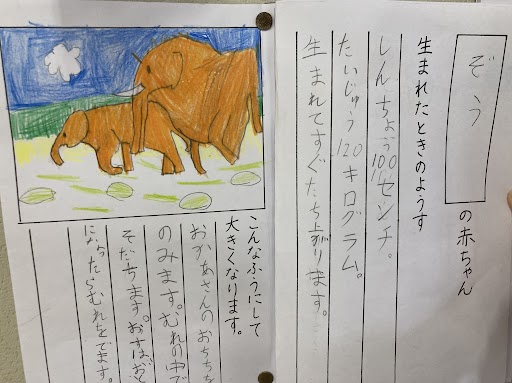 ぞう
の赤ちゃん
生まれたときのようす
しんちょう100センチ。
たいじゅう120キログラム。
生まれてすぐたち上がります。
こんなふうにして
大きくなります。
おかあさんのおちちを
のみます。むれの中で
そだちます。おすはおと
になったらむれをでます。